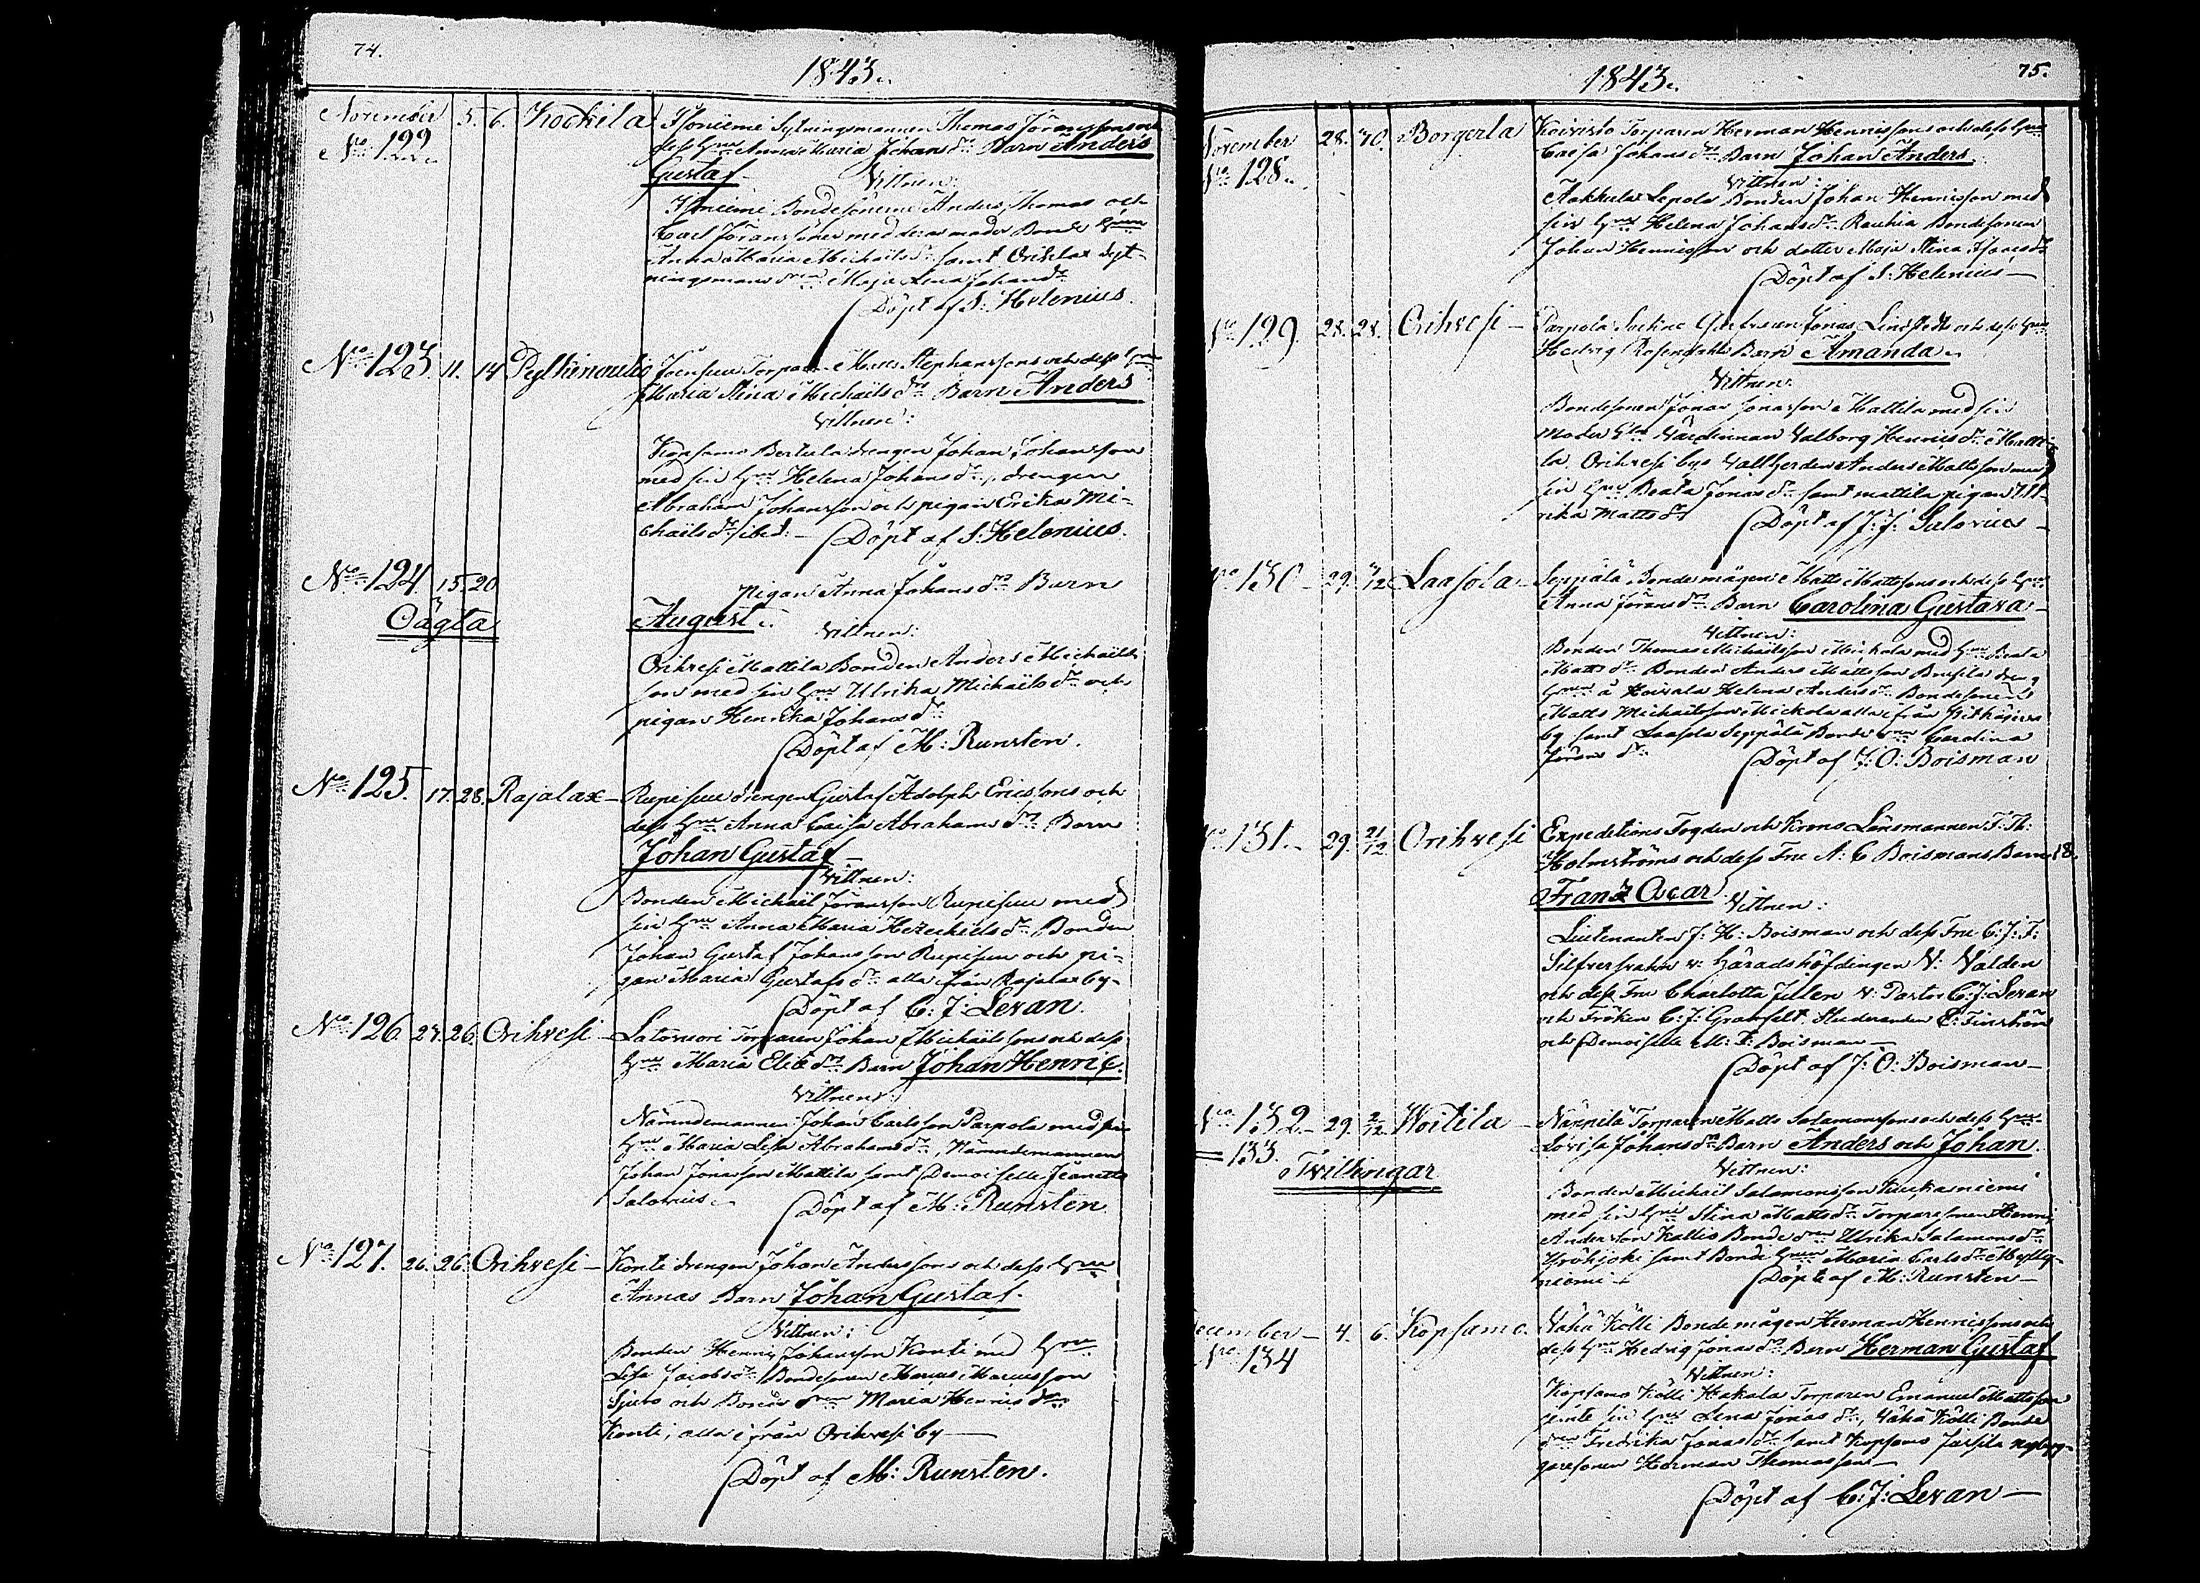 74.
1843.
November 5. 6. Kockila Isoniemi Sytningsmannen Thomas Jöranssons och
No 122. dess Hu Anna Maria Johans dr Barn Anders
Gustaf
Vittnen:
Isoniemi Bondesönerne Anders, Thomas och
Carl Jöranssöner med deras moder Bonde
Anna Maria Michaëls dr samt Orihlax Syt-
ningsmans Maja Lena Johans dr
Döpt af S: Helenius.
No 123. 11. 14 Torparen Stephanssons och dess Hu
Maria Stina Michaëls dr Barn Anders
Vittnen:
Kopsamo Bertula drengen Johan Johansson
med sin Hu Helena Johans dr, drengen
Abraham Johansson och pigan Erika Mi-
chaëls dr ibid: — Döpt af S: Helenius.
No 124. 15. 20 Pigan Anna Johans dr Barn
Oägta August.
Vittnen:
Orihvesi Mattila Bonden Anders Michaëls
son med sin Hu Ulrika Michaëls dr och
pigan Henrika Johans dr
Döpt af M: Runsten.
No 125. 17. 28. Rajalax — Rupisuu drengen Gustaf Adolph Ericssons och
dess Hu Anna Caisa Abrahams dr Barn
Johan Gustaf —
Vittnen:
Bonden Michaël Jöransson Rupisuu med
sin Hu Anna Maria Hezechiels dr Bonden
Johan Gustaf Johansson Rupisuu och pi-
gan Maria Gustafs dr alla från Rajalax by-
Döpt af C: J: Levan.
No 126. 24. 26. Orihvesi — Torparen Johan Michaëlssons och dess
Hu Maria Elie dr Barn Johan Henric.
Vittnen:
Nämndemannen Johan Carlsson Parpola med sin
Hu Maria Lisa Abrahams dr, Nämndemannen
Johan Jonasson Mattila samt Demoiselle Jeanette
Salovius.
Döpt af M: Runsten
No 127. 26. 26. Orihvesi — Konti drengen Johan Anderssons och dess Hu
Annas Barn Johan Gustaf.
Vittnen:
Bonden Henric Johansson Konti med Hu
Lisa Jacobs dr Bondesonen Marcus Marcusson
och Bonde Maria Henrics dr
Konti, alla ifrån Orihvesi by —
Döpt af M: Runsten.
1843.
75.
November 28. 70. Borgerla Koivisto Torparen Herman Henrissons och dess Hu
No 128. Caisa Johans dr Barn Johan Anders.
Vittnen:
Lepola Bonden Johan Henrisson med
sin Hu Helena Johans dr Rauhia Bondesonen
Johan Henrisson och dotter Maja Stina
Döpt af S: Helenius —
No 129 28. 28. Orihvesi — Parpola Jonas Lindstedts och dess Hu
Hedvig Rosendahls Barn Amanda.
Vittnen:
Bondesonen Jonas Jonasson Mattila med sin
Moder Värdinnan Valborg Henrics dr Matti-
la Orihvesi bys Anders Mattsson med
sin Hu Beata Jonas dr samt Mattila pigan Ul-
rika Matts dr
Döpt af J: J: Salovius —
No 130 — 29. 3/12 Laasola — Seppälä Bonde mågen Matts Mattssons och dess Hu
Anna Jörans dr Barn Carolina Gustava —
Vittnen:
Bonden Thomas Michaëlsson Mickola med Hu Beata
Matts dr Bonden Anders Mattsson
å Koivala Helena Anders dr Bondesonen
Matts Michaëlsson Mickola alla ifrån
by samt Laasola Seppälä Bonde Carolina
Jörans dr
Döpt af J: O: Boisman
No 131. — 29. 21/12 Orihvesi Expeditions Fogden och Krono Länsmannen F: Th:
Holmströms och dess Fru A: C Boismans Barn 18.
Franz Oscar.
Vittnen:
Lieutenanten J: H: Boisman och dess Fru C: J: F:
v: Häradshöfdingen V: Valden
och dess Fru Charlotta v: Pastor C: J: Levan
och Fröken C: J: Studeranden
och Demoiselle M: F: Boisman —
Döpt af J: O: Boisman —
No 132 — 29. 2/12 Woitila — Näppilä Torparen Matts Salomonssons och dess Hu
= 133. Lovisa Johans dr Barn Anders och Johan.
Twillingar
Vittnen:
Bonden Michaël Salomonsson
med sin Hu Stina Matts dr Torparesonen Henric
Andersson Kallio Bonde Ulrika Salamons dr
samt Bonde Maria Carls dr
niemi —
Döpt af M: Runsten —
December — 4. 6. Kopsamo. Vähä Kölli Bonde mågen Herman Henricssons och
No 134 dess Hu Hedvig Jonas dr Barn Herman Gustaf
Vittnen:
Kopsamo Kölli Hakala Torparen Emanuel Mattsson
jemte sin Hu Lena Jonas dr, Vähä Kölli Bonde
Fredrika Jonas dr samt Kopsamo nybyg-
garesonen Herman Thomasson —
Döpt af C: J: Levan —